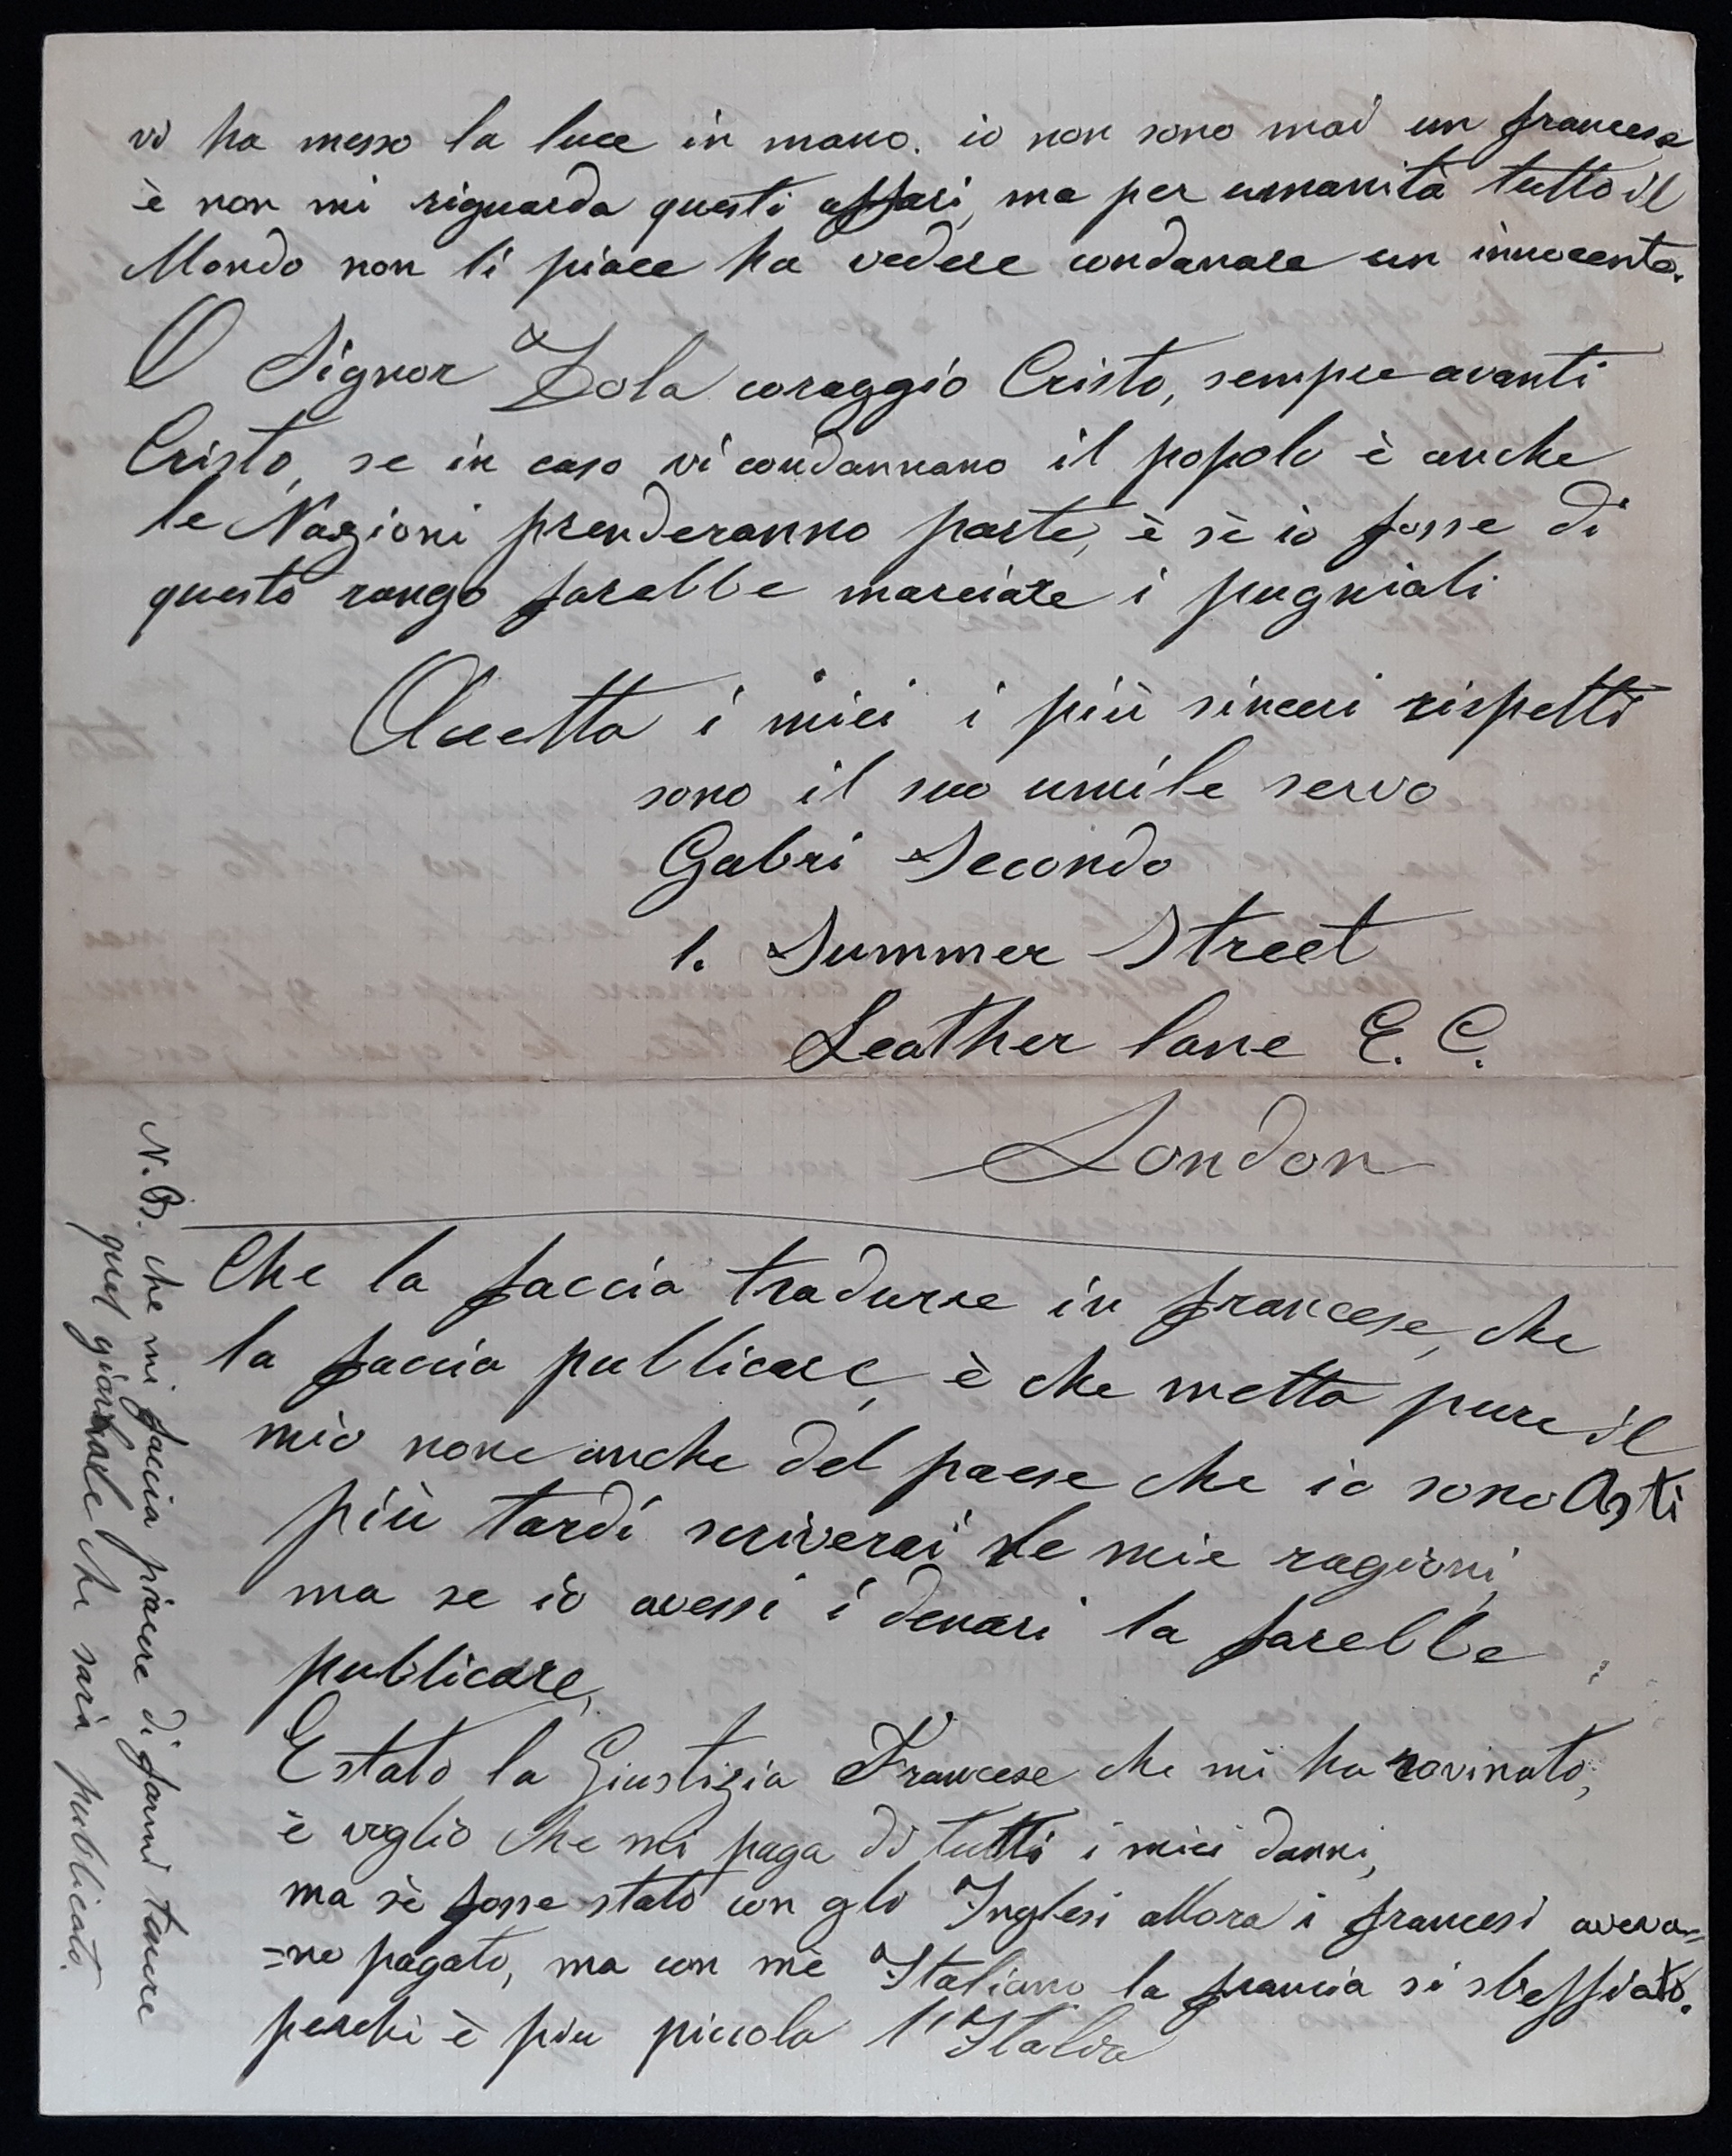 vi ha messo la luce in mano. io non sono mai un francese
è non mi riguarda questi affari, ma per umanità tutto il
Mondo non li piace ha vedere condanare un innocente.
O Signor Zola coraggio Cristo, sempre avanti
Cristo, se in caso vi condannano il popolo è anche
le Nazioni prenderanno parte, è sè io fosse di
questo rango farebbe marciare i pugniali
Accetta i miei i più sinceri rispetti
sono il suo umile servo
Gabri Secondo
1. Summer Street
Leather lane E. C.
London
Che la faccia tradurre in francese, che
la faccia publicare, è che metta pure il
mio nome anche del paese che io sono Asti
più tardi scriverai le mie ragioni,
ma se io avessi i denari la farebbe
publicare,
E stato la Giustizia Francese che mi ha rovinato,
è voglio che mi paga di tutti i miei danni,
ma sè fosse stato con gli Inglesi allora i francesi aveva=
=no pagato, ma con me Italiano la francia si sbeffiato.
perchi è piu piccola l'Italia
N. B. che mi faccia piacere di farmi tenere
quel giornale che sarà publicato.